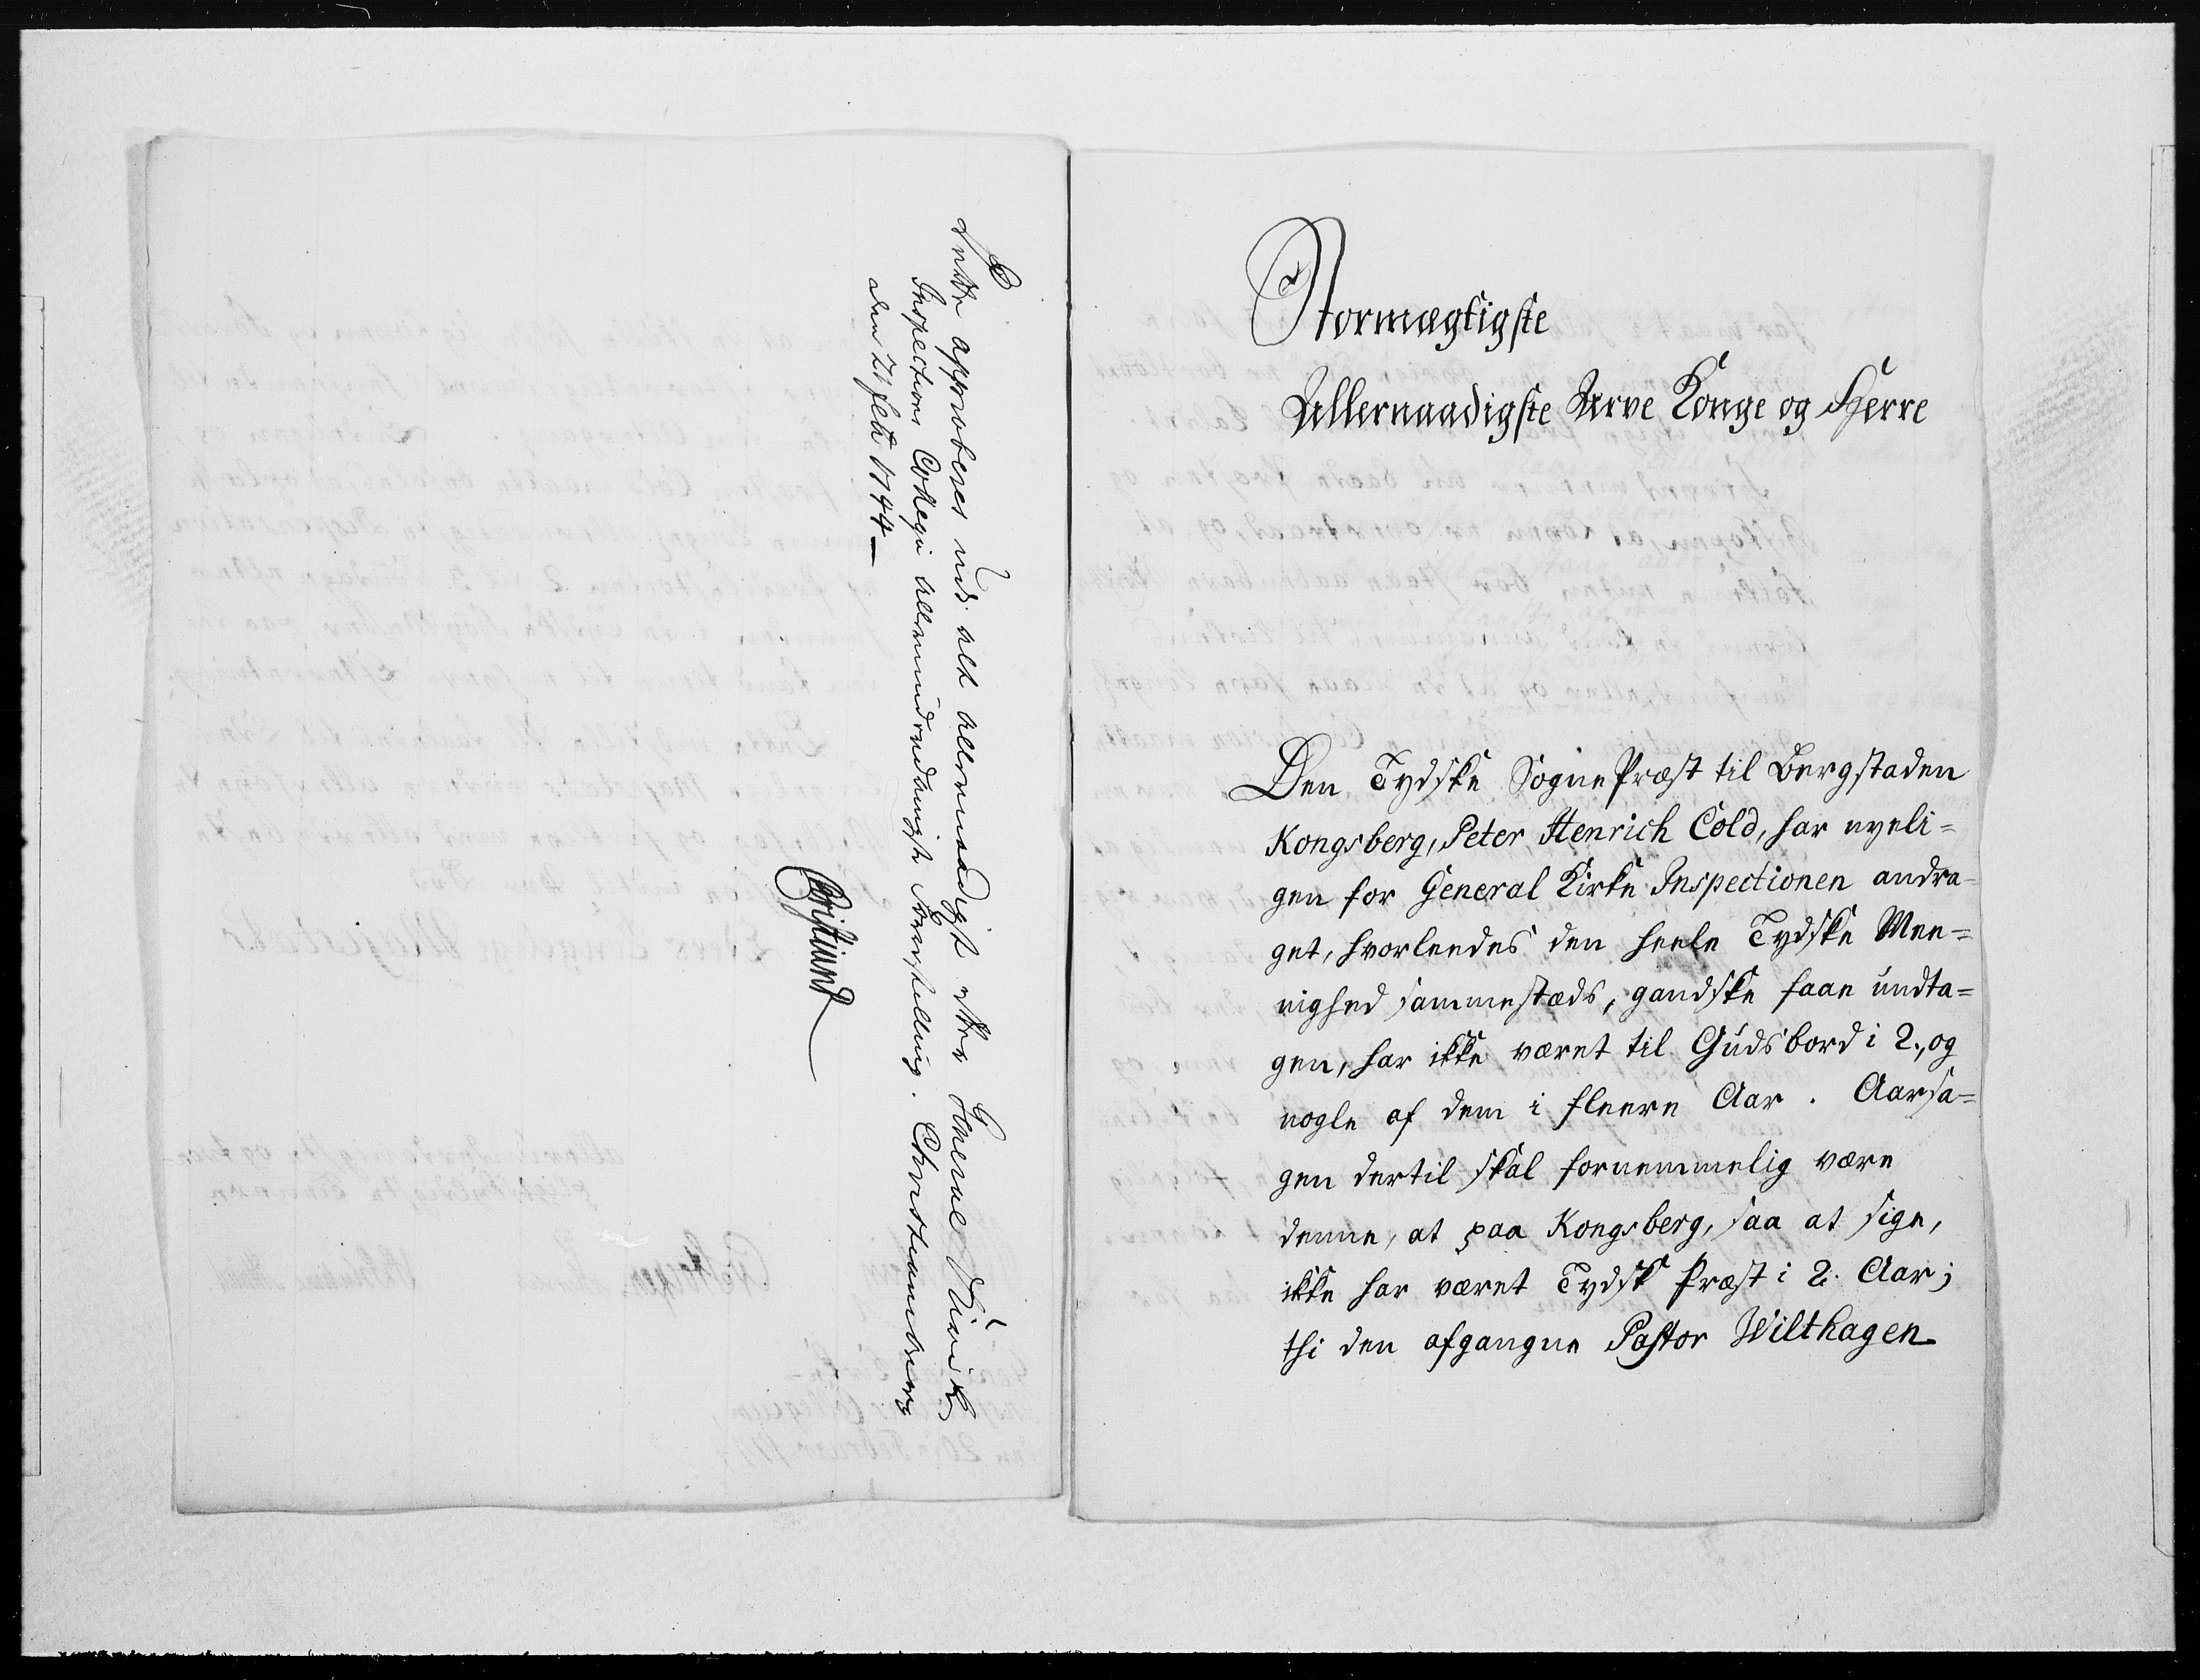 Dette approberes udi alt allernaadigst efter General Kirke
Inspections Collegii allerunderdanigste Forestilling. Christiansborg
den 21 febr 1744
Stormægtigste
Allernaadigste Arve Konge og Herre
Den Tydske SognePræst til Bergstaden
Kongsberg, Peter Henrich Cold, har nyeli=
gen for General Kirke Inspectionen andra-
get, hvorleedes den heele Tydske Mee=
nighed sammestæds, gandske faae undta=
gen, har ikke været til Guds bord i 2., og
nogle af dem i fleere Aar. Aarsa=
gen dertil skal fornemmelig være
denne, at paa Kongsberg, saa at sige,
ikke har været Tydsk Præst i 2. Aar;
thi den afgangne Pastor Wilthagen